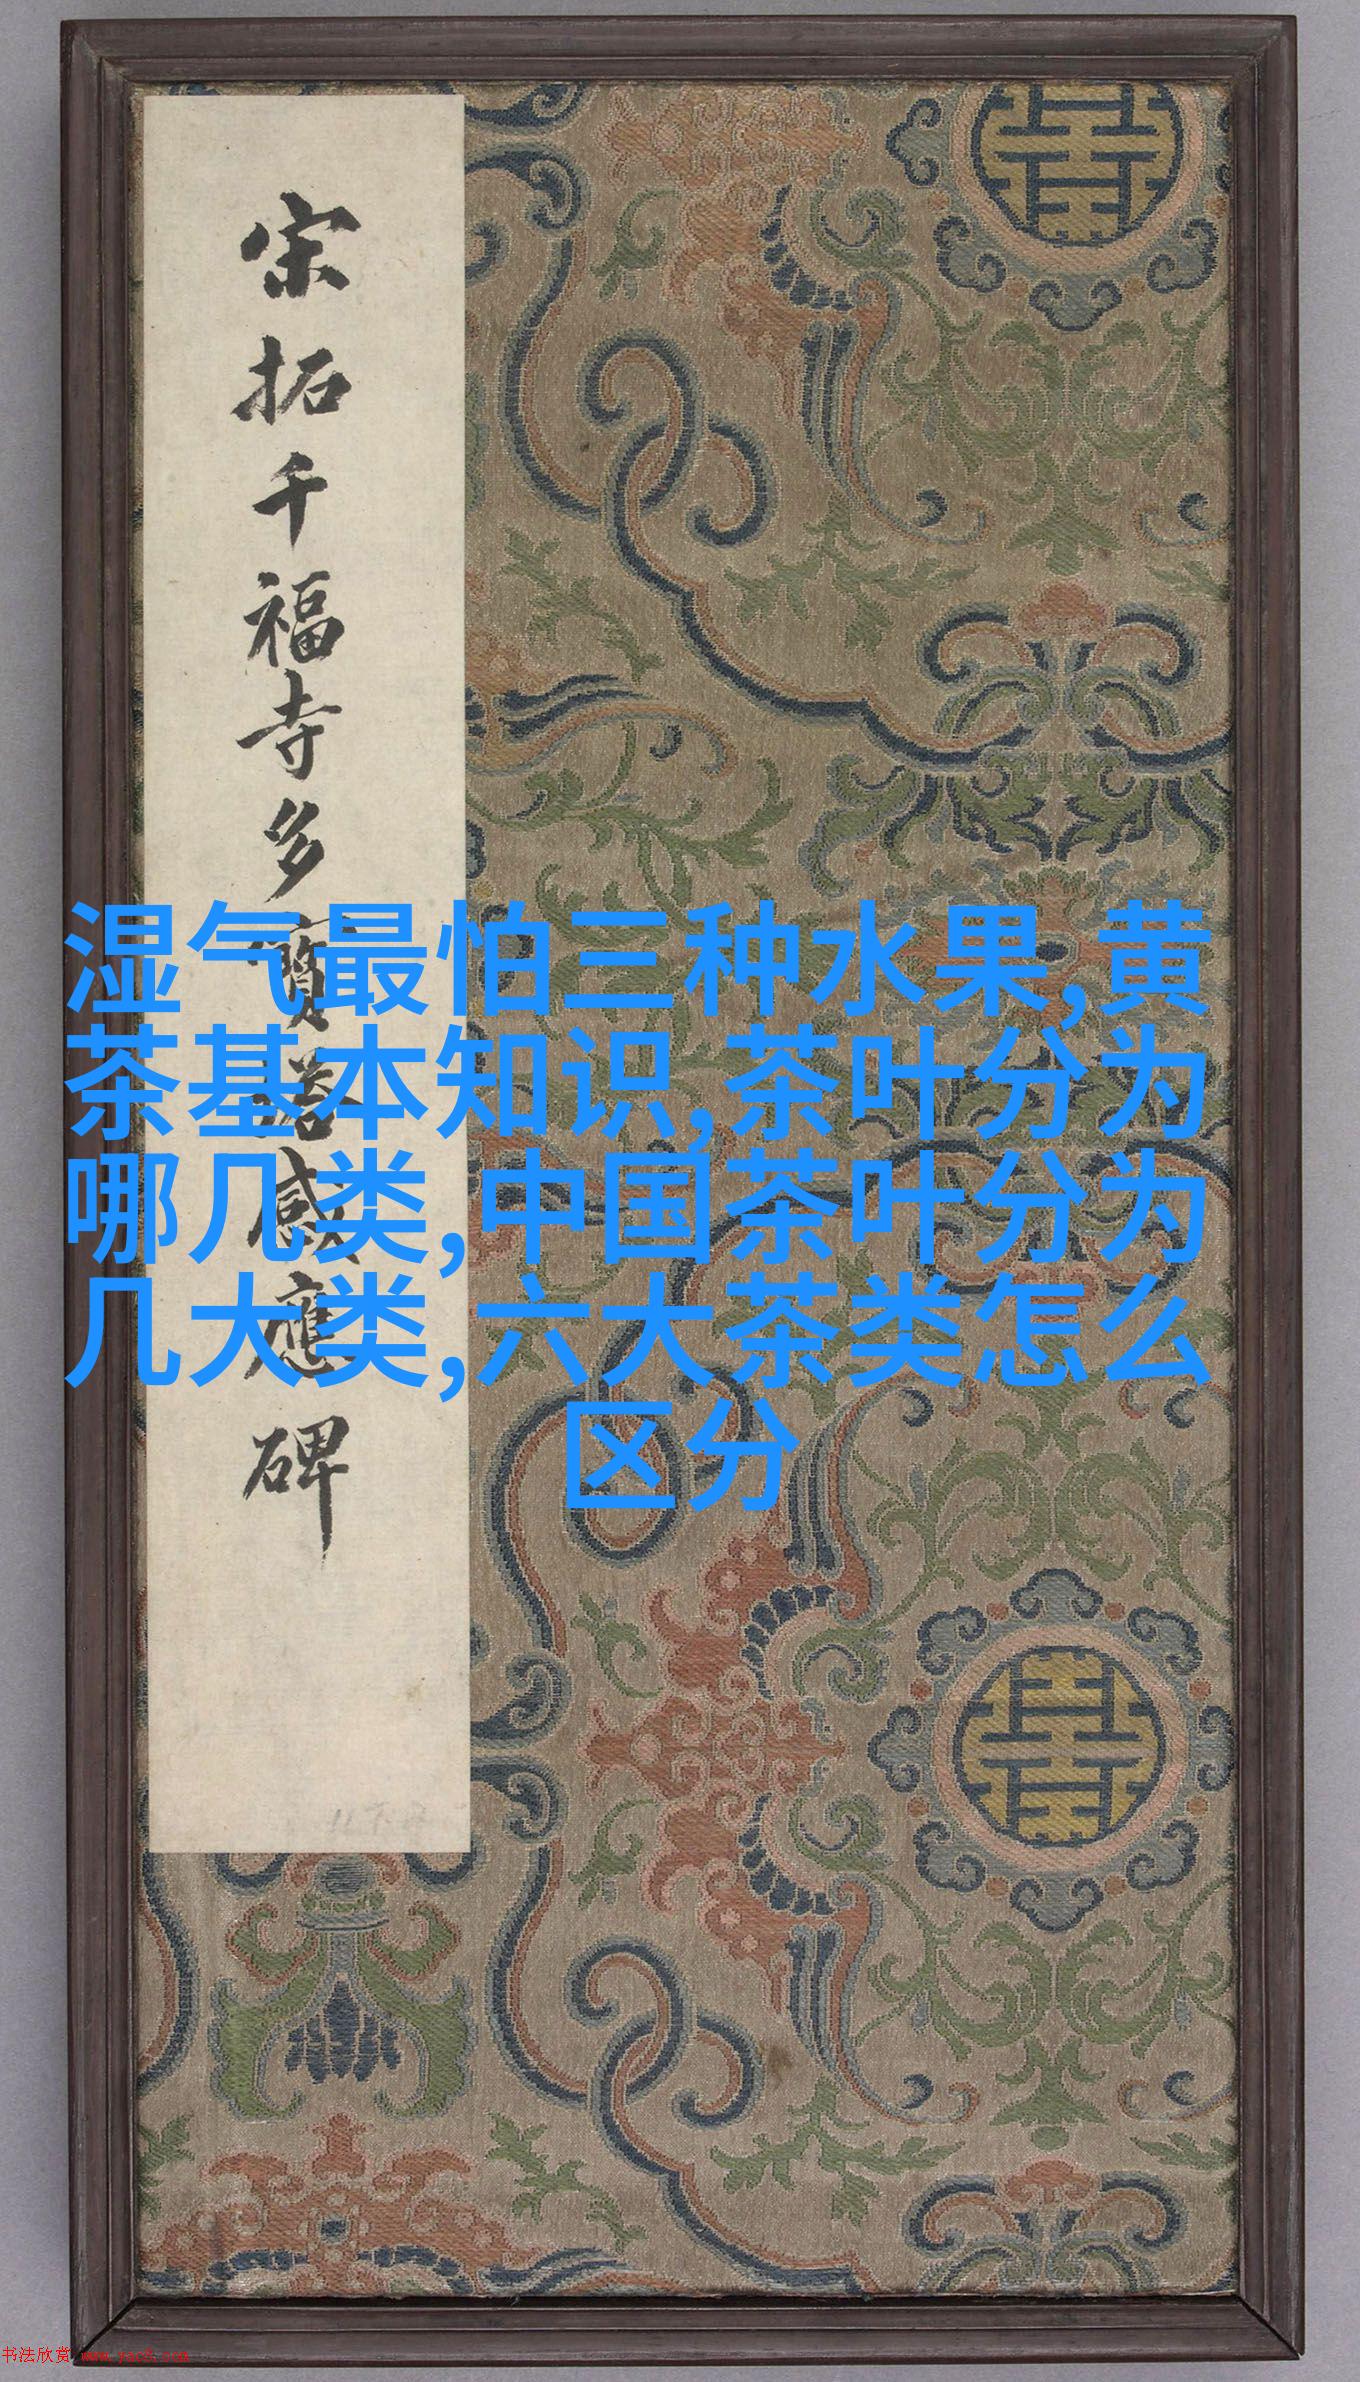 宋拓千福寺多寶塔感應碑
湿气最怕三种水果,黄
茶基本知识,茶叶分为
哪几类,中国茶叶分为
几大类,六大茶类怎么
区分
书法欣赏 www.yac8.com